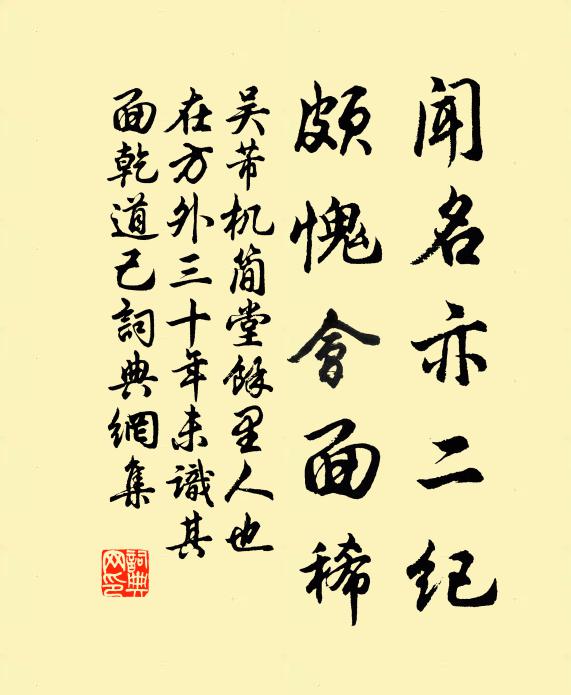 闻名亦二纪
颇愧會面稀
吴芾机简堂馀里人也
在方外三十年未識其
面乾道己詞典網集
詞典网印